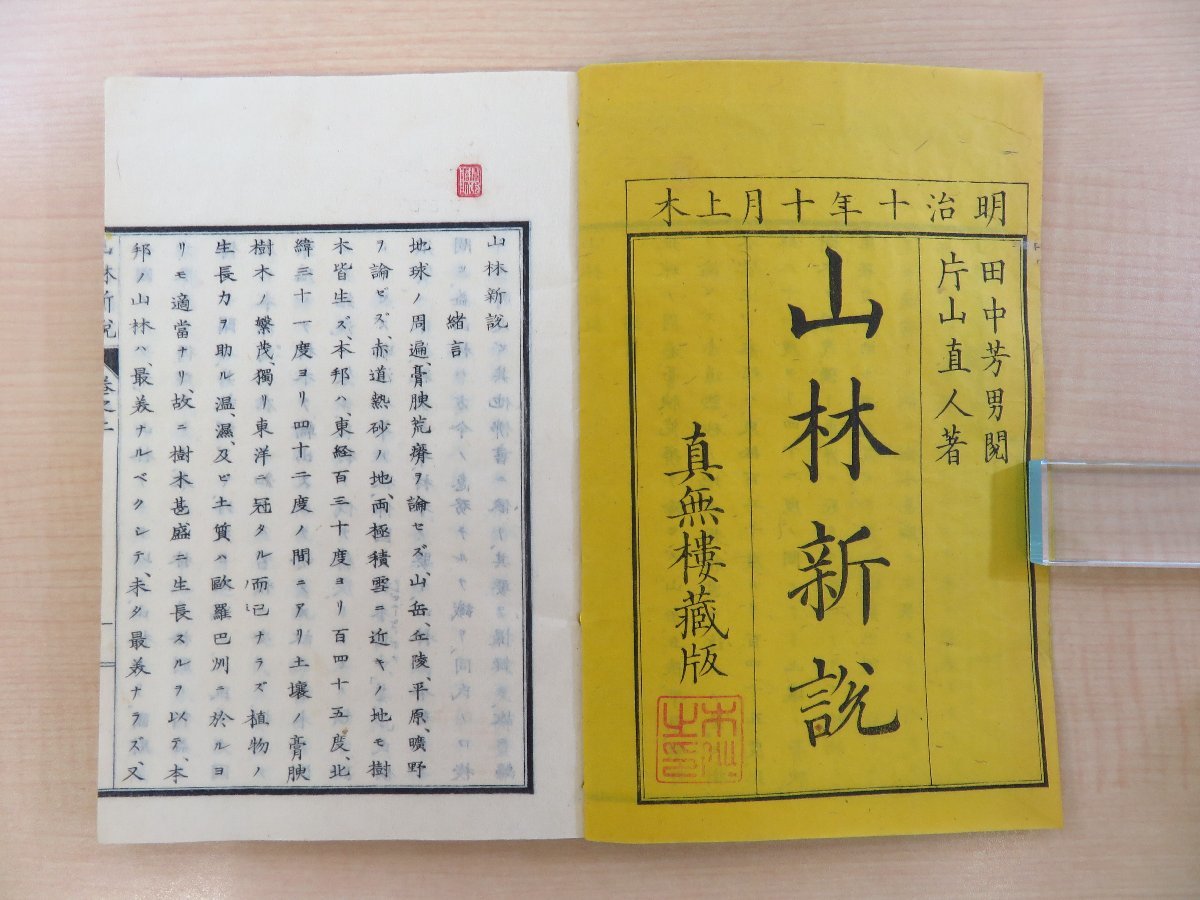 明治十年十月上木
田中芳男閲
片山直人著
山林新説
真無樓藏版
山林新説
緒言
地球ノ周遍、膏腴荒瘠ヲ論セズ、山岳、丘陵、平原、曠野
ヲ論ゼズ、赤道熱砂ノ地、両極積雪ニ近キノ地モ樹
木皆生ズ、本邦ハ、東経百三十度ヨリ百四十五度、北
緯三十一度ヨリ四十二度ノ間ニアリ土壤ノ膏腴
樹木ノ繁茂、獨リ東洋ニ冠タル而已ナラズ植物ノ
生長力ヲ助ル温、濕、及ビ土質ハ歐羅巴洲ニ於ルヨ
リモ適當ナリ、故ニ樹木甚盛ニ生長スルヲ以テ、本
邦ノ山林ハ、最美ナルベクシテ、未タ最美ナラズ、又
山林新説